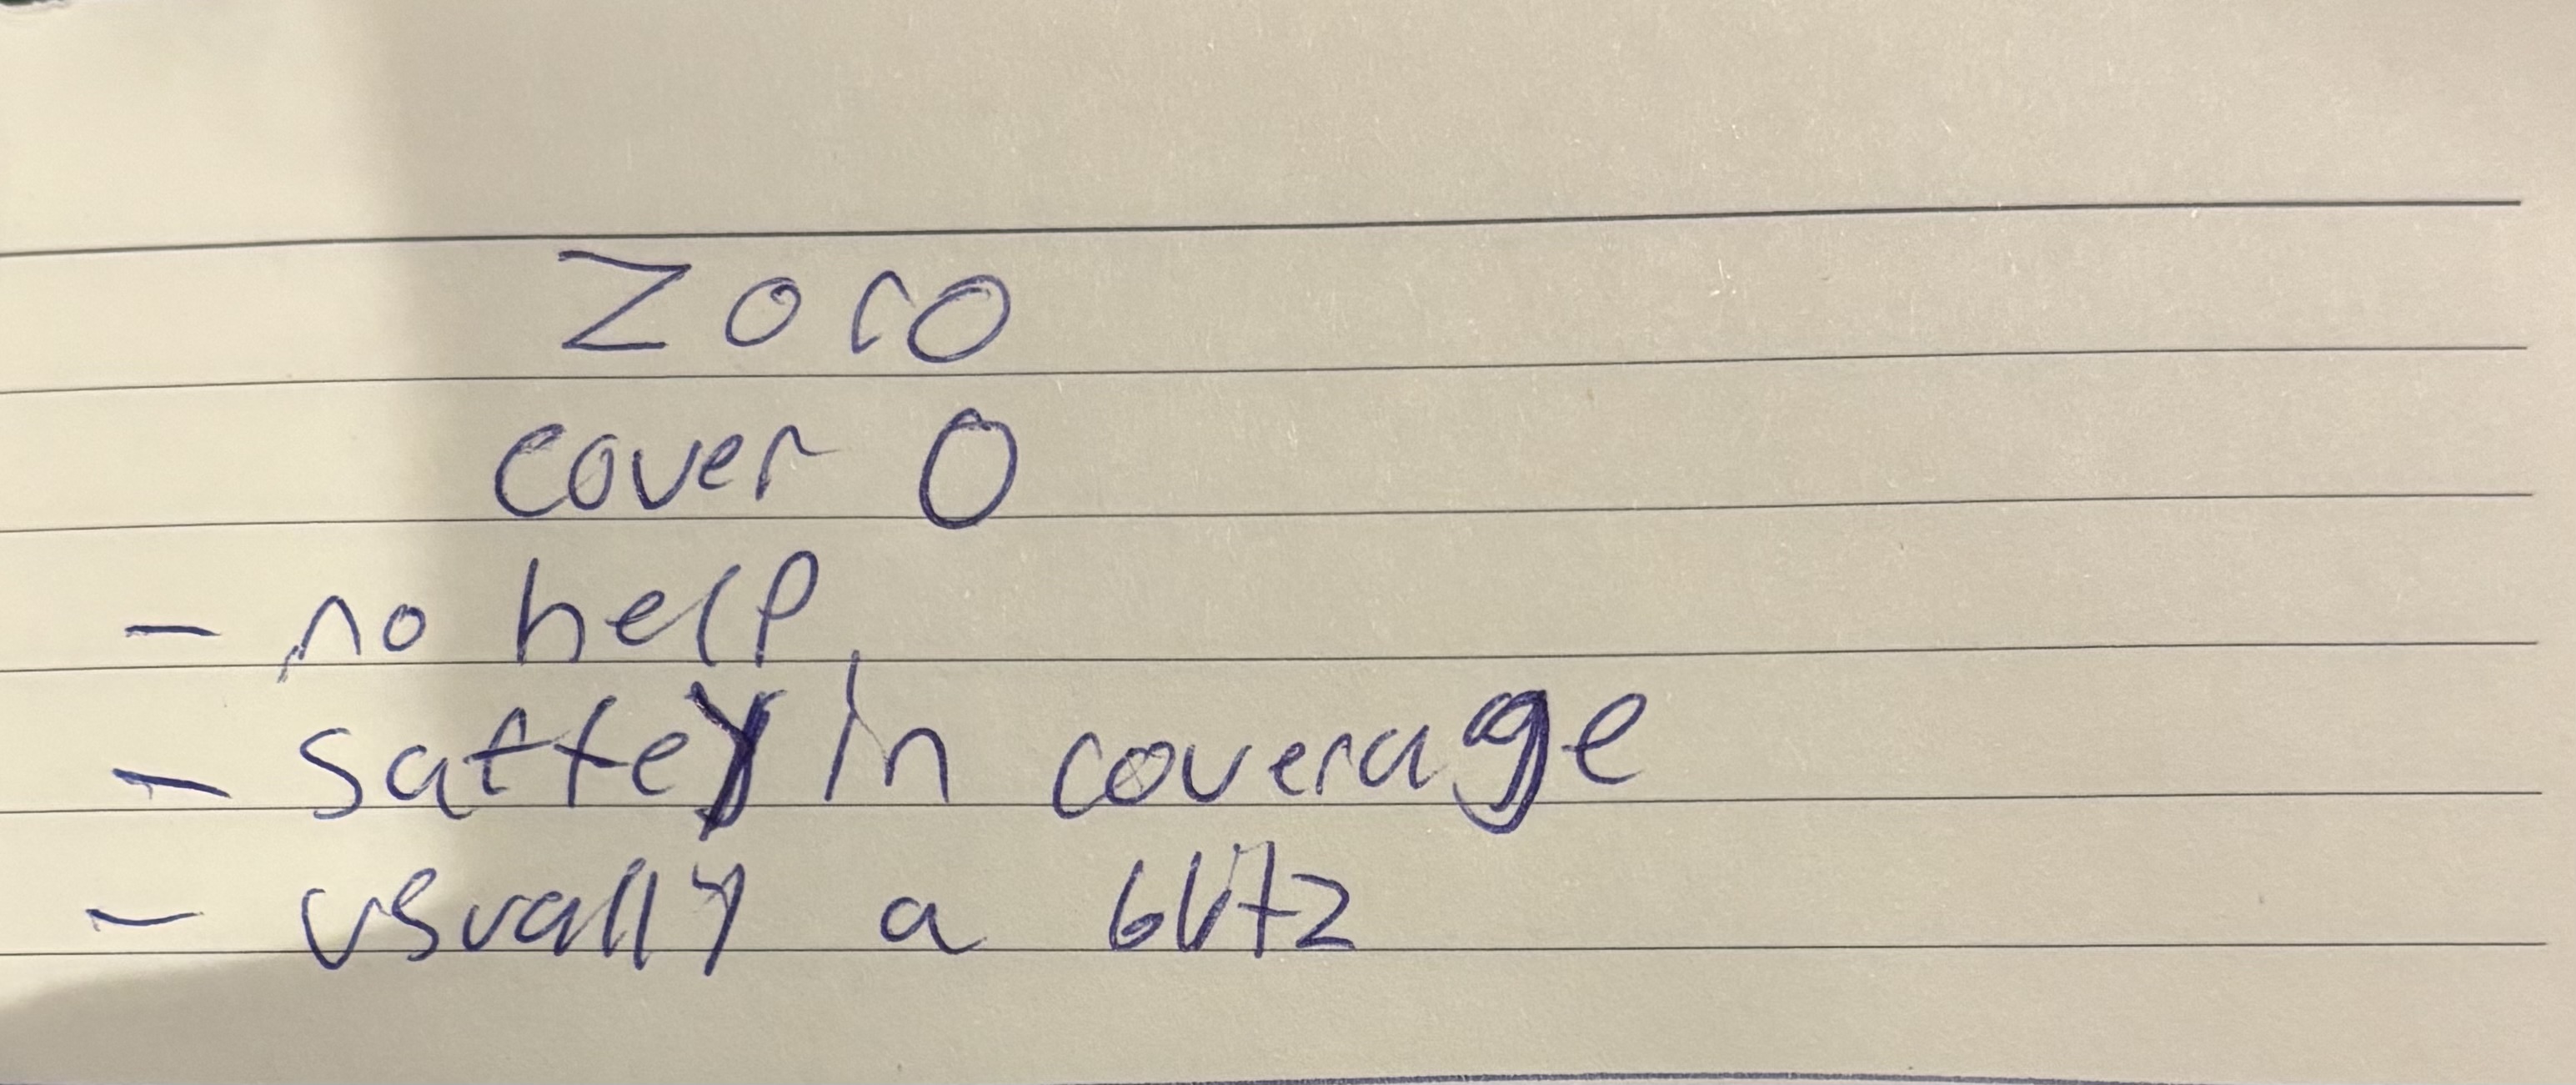 Zoro
cover 0
- no help
- saftey in coverage
- usually a blitz